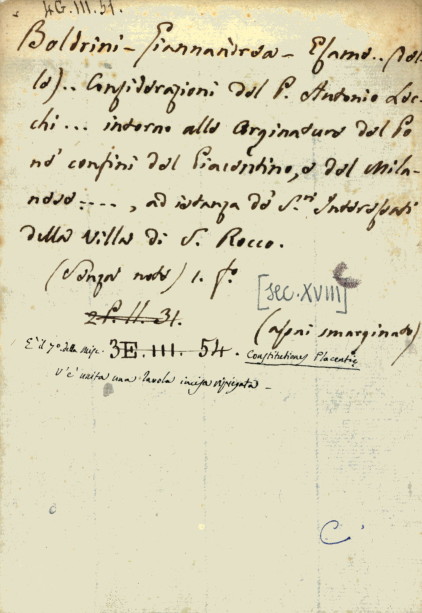 4G.III.51.
Boldrini - Giannandrea - Esame.. (del-
le).. Considerazioni del P. Antonio Lec-
chi... intorno alle Arginature del Po
ne' confini del Piacentino, e del Mila-
nese...., ad istanza de' S.ri Interessati
della Villa di S. Rocco.
(Senza note) 1. f.o
[sec. XVIII]
2L.II.31.
(assai smarginato)
E' il 7.o della Misc. 3E.III.54. Constitutiones Placentię
V'è unita una Tavola incisa ripiegata -
C